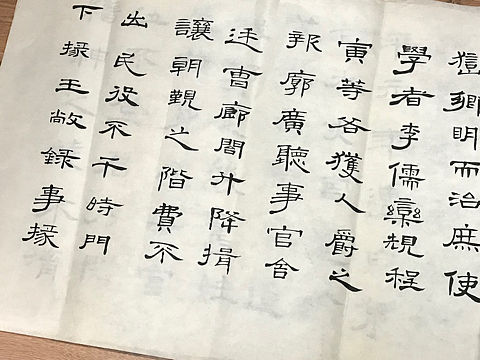 鄉明而治庶使
學者李儒欒規程
寅等各獲人爵之
報廓廣聽事官舍
廷曹廊閣升降揖
讓朝覲之階費不
出民役不干時門
下掾王敞錄事掾